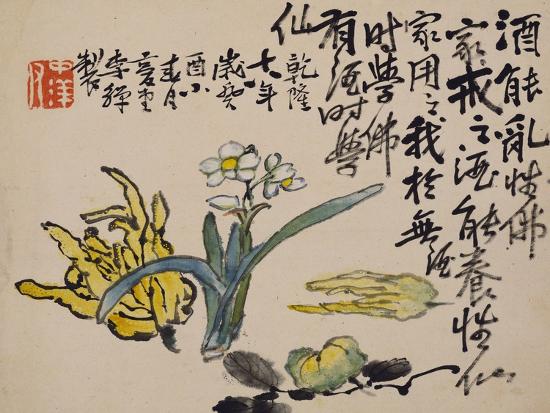 酒能乱性佛
家戒之酒能養性仙
家用之我於無酒
時學佛
有酒时學
仙
乾隆
十八年
歲癸
酉小
春月
復堂
李鱓
製
中洋